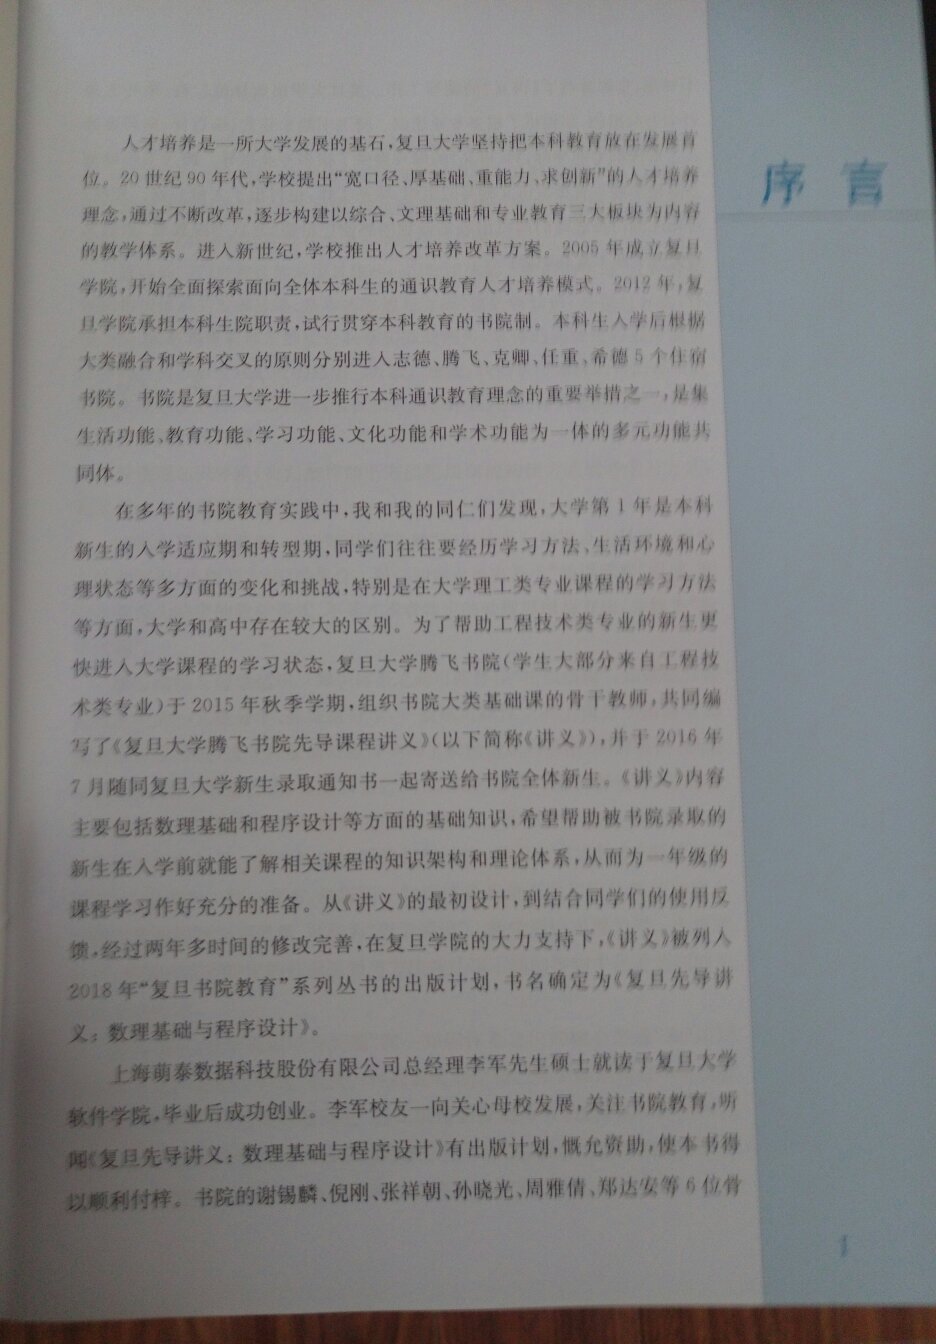 序言
人才培养是一所大学发展的基石,复旦大学坚持把本科教育放在发展首
位。20世纪90年代,学校提出“宽口径、厚基础、重能力、求创新”的人才培养
理念,通过不断改革,逐步构建以综合、文理基础和专业教育三大板块为内容
的教学体系。进入新世纪,学校推出人才培养改革方案。2005年成立复旦
学院,开始全面探索面向全体本科生的通识教育人才培养模式。2012年,复
旦学院承担本科生院职责,试行贯穿本科教育的书院制。本科生入学后根据
大类融合和学科交叉的原则分别进入志德、腾飞、克卿、任重、希德5个住宿
书院。书院是复旦大学进一步推行本科通识教育理念的重要举措之一,是集
生活功能、教育功能、学习功能、文化功能和学术功能为一体的多元功能共
同体。
在多年的书院教育实践中,我和我的同仁们发现,大学第1年是本科
新生的入学适应期和转型期,同学们往往要经历学习方法、生活环境和心
理状态等多方面的变化和挑战,特别是在大学理工类专业课程的学习方法
等方面,大学和高中存在较大的区别。为了帮助工程技术类专业的新生更
快进入大学课程的学习状态,复旦大学腾飞书院(学生大部分来自工程技
术类专业)于2015年秋季学期,组织书院大类基础课的骨干教师,共同编
写了《复旦大学腾飞书院先导课程讲义》(以下简称《讲义》),并于2016年
7月随同复旦大学新生录取通知书一起寄送给书院全体新生。《讲义》内容
主要包括数理基础和程序设计等方面的基础知识,希望帮助被书院录取的
新生在入学前就能了解相关课程的知识架构和理论体系,从而为一年级的
课程学习作好充分的准备。从《讲义》的最初设计,到结合同学们的使用反
馈,经过两年多时间的修改完善,在复旦学院的大力支持下,《讲义》被列入
2018年“复旦书院教育”系列丛书的出版计划,书名确定为《复旦先导讲
义:数理基础与程序设计》。
上海萌泰数据科技股份有限公司总经理李军先生硕士就读于复旦大学
软件学院,毕业后成功创业。李军校友一向关心母校发展,关注书院教育,听
闻《复旦先导讲义:数理基础与程序设计》有出版计划,慨允资助,使本书得
以顺利付梓。书院的谢锡麟、倪刚、张祥朝、孙晓光、周雅倩、郑达安等6位骨
1